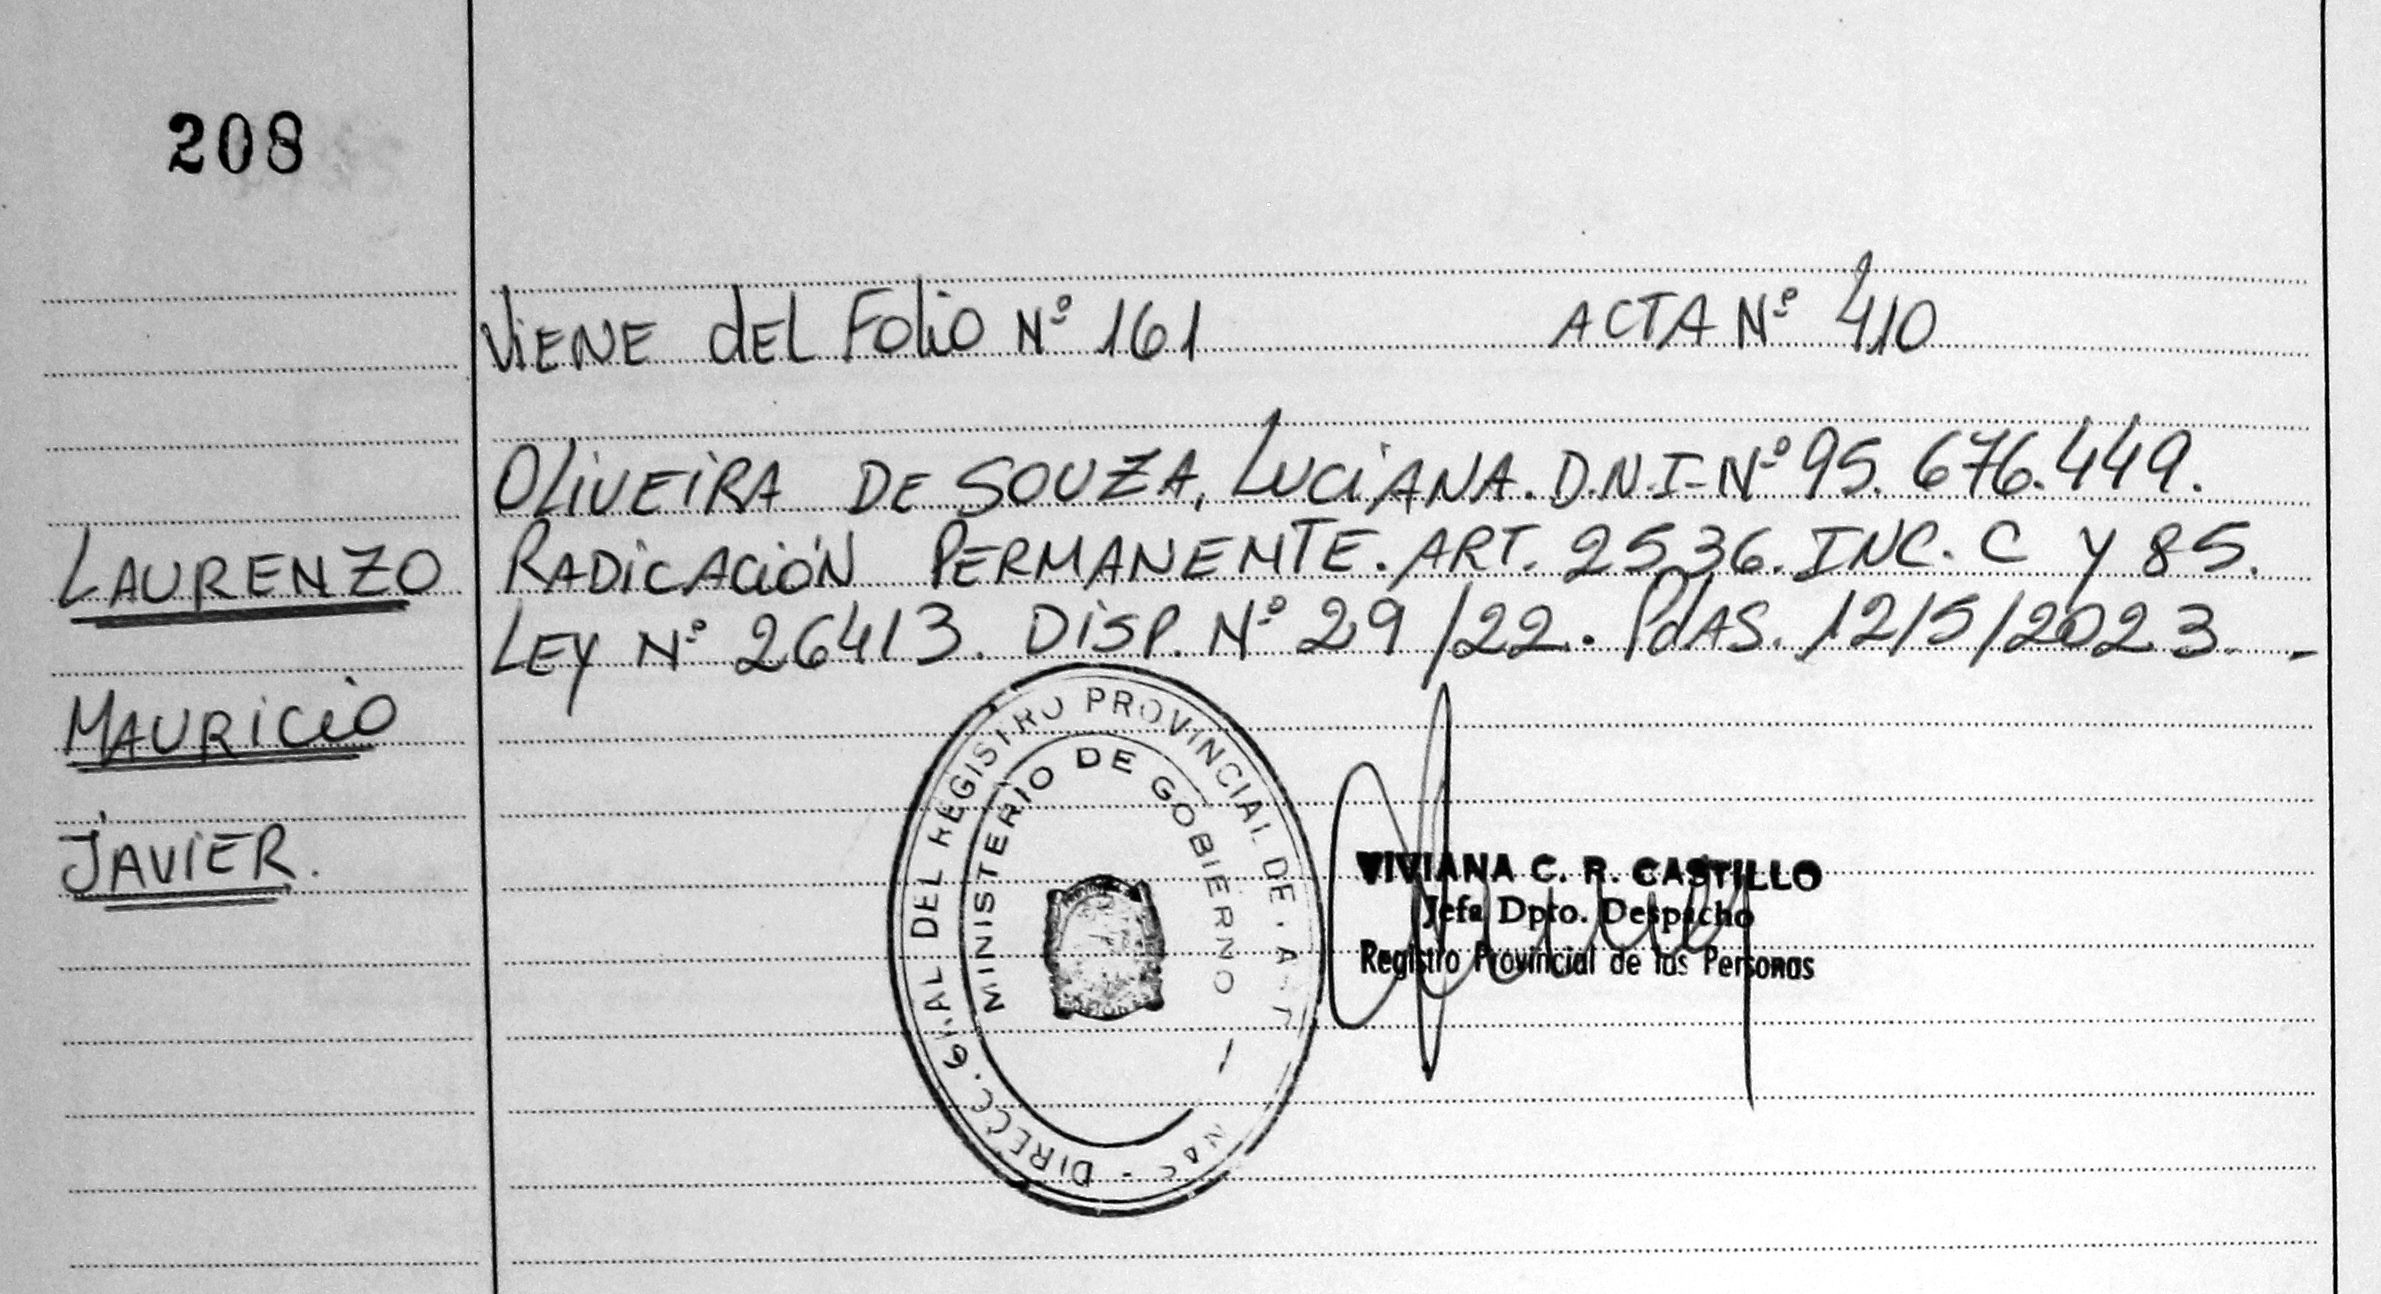 208
ViENE dEL Folio Nº 161 ACTA Nº 410
OLiVEiRA DE SOUZA, LUCiANA. D.N.I-Nº 95.676.449.
LAURENZO
RADiCACióN PERMANENTE. ART. 2536. INC. C Y 85.
LEY Nº 26413. DiSP. Nº 29/22. PdAS. 12/5/2023.-
MAURiCiO
JAViER.
DIRECC. GRAL DEL REGISTRO PROVINCIAL DE
MINISTERIO DE GOBIERNO
VIVIANA C. R. CASTILLO
Jefa Dpto. Despacho
Registro Provincial de las Personas